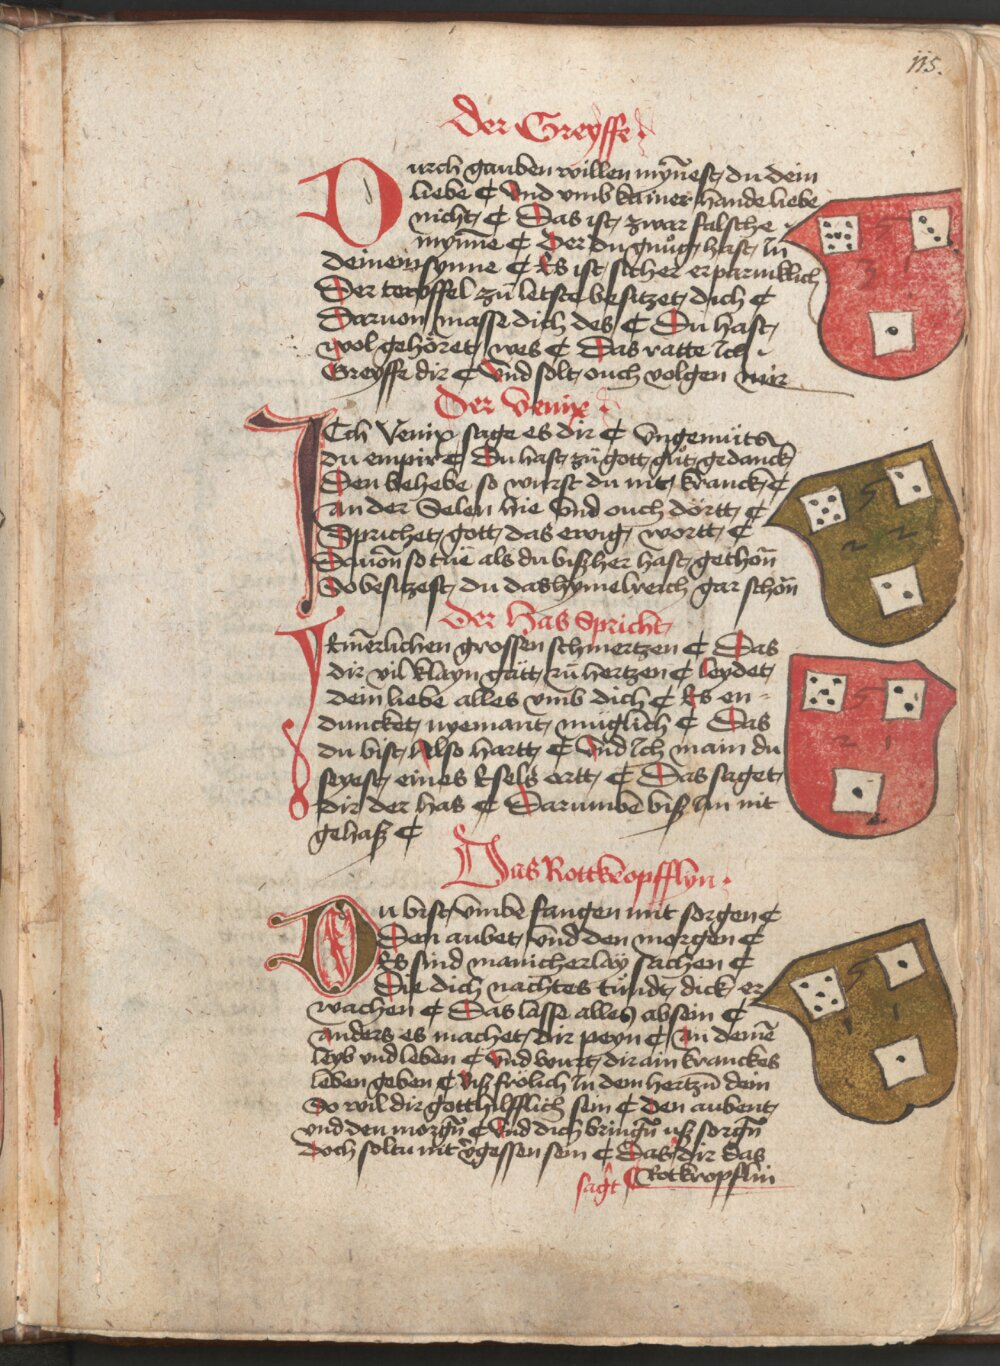 115.
Der Greyffe.
Durch gauben willen mynnest du dein
liebe ¢ Vnd vmb kainer hande liebe
nicht ¢ Das ist zwar falsche
mynne ¢ Der du gnůg hast In
deinem synne ¢ Es ist sicher erparmklich
Der teüffel zů letste besitzet dich ¢
Daruon masse dich des ¢ Du hast
wol gehöret wes ¢ Das ratte Ich
Greyffe dir ¢ Vnd solt ouch volgen mir
Der Venix.
ICh Venix sage es dir ¢ Vngemüts
du empir ¢ Du hast zů gott gůt gedanck
Den behebe so wurst du nit kranck ¢
An der Selen hie Vnd ouch dörtt ¢
Sprichet gott das ewig wortt ¢
Dauon so tue als du bißher hast gethon
So besitzest du das hymelreich gar schön
Der Has Spricht
Ymerlichen grossen schmertzen ¢ Das
dir vil klayn gätt zů hertzen ¢ leydet
dein liebe alles vmb dich ¢ Es en-
duncket nyemant müglich ¢ Das
du bist Also hartt ¢ Vnd Ich main du
seyest eines Esels ortt ¢ Das saget
dir der has ¢ Darumbe biß Im nit
gehaß ¢
Das Rottkeopfflyn.
Du bist vmbe fangen mit sorgen ¢
Den aubet Vnd den morgen ¢
Es sind manicherlay sachen ¢
Die dich nachtes tůndt dick er
wachen ¢ Das lasse alles absein ¢
Anders es machet dir peyn ¢ An deine
leyb vnd leben ¢ Vnd wurt dir ain kranckes
leben geben ¢ Biß frölich In dem hertzn dem
So wil dir gott hilfflich sein ¢ Den aubent
vnd den morgn ¢ Vnd dich bringn uß sorgn
Doch soltu nit vgessen sein ¢ Das dir das
sagt Rotkropflin
5
3 1
5
2 2
5
2 1
5
1 1